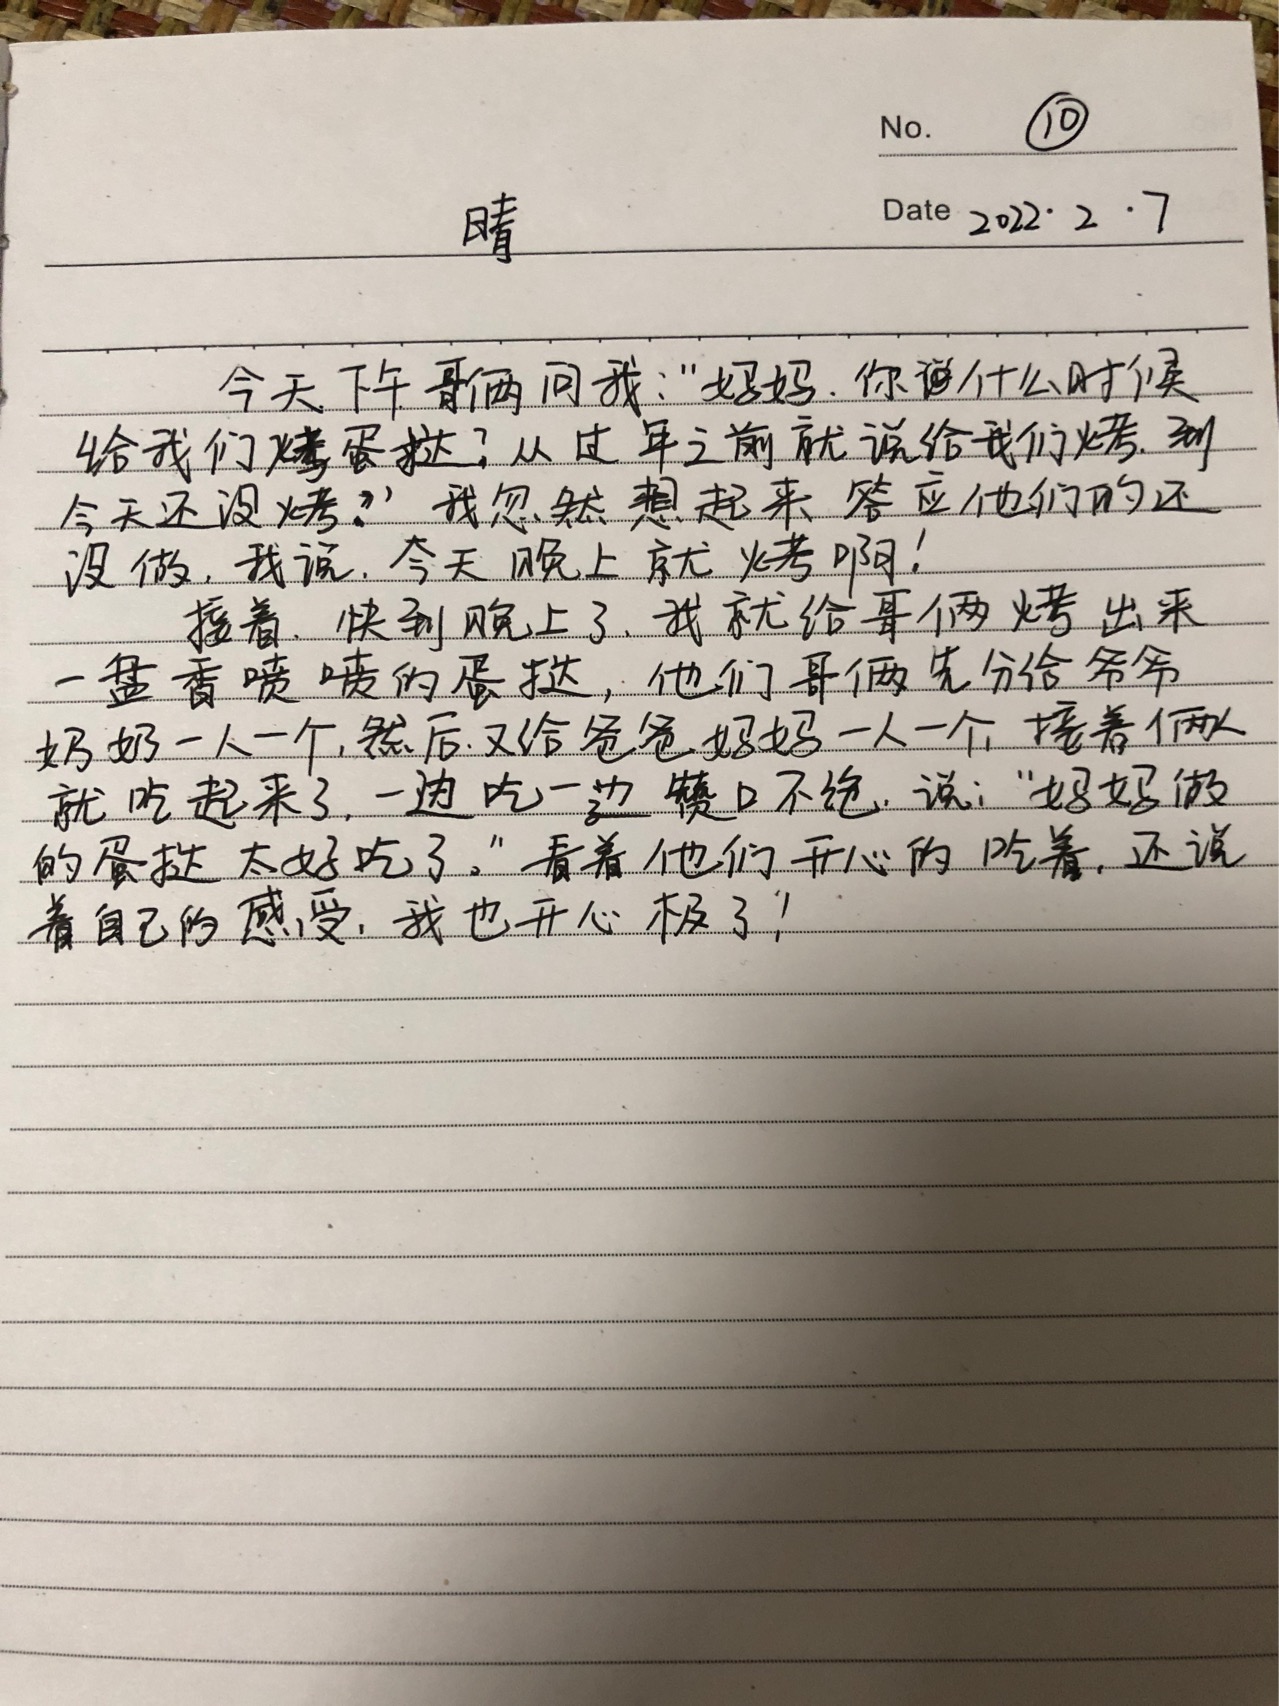 No. ⑩
晴
Date 2022.2.7
今天下午哥俩问我:"妈妈.你说什么时候
给我们烤蛋挞?从过年之前就说给我们烤.到
今天还没烤?"我忽然想起来答应他们的还
没做.我说.今天晚上就烤啊!
接着.快到晚上了.我就给哥俩烤出来
一盘香喷喷的蛋挞,他们哥俩先分给爷爷
奶奶一人一个,然后又给爸爸妈妈一人一个,接着俩人
就吃起来了,一边吃一边赞口不绝.说:"妈妈做
的蛋挞太好吃了。"看着他们开心的吃着,还说
着自己的感受,我也开心极了!